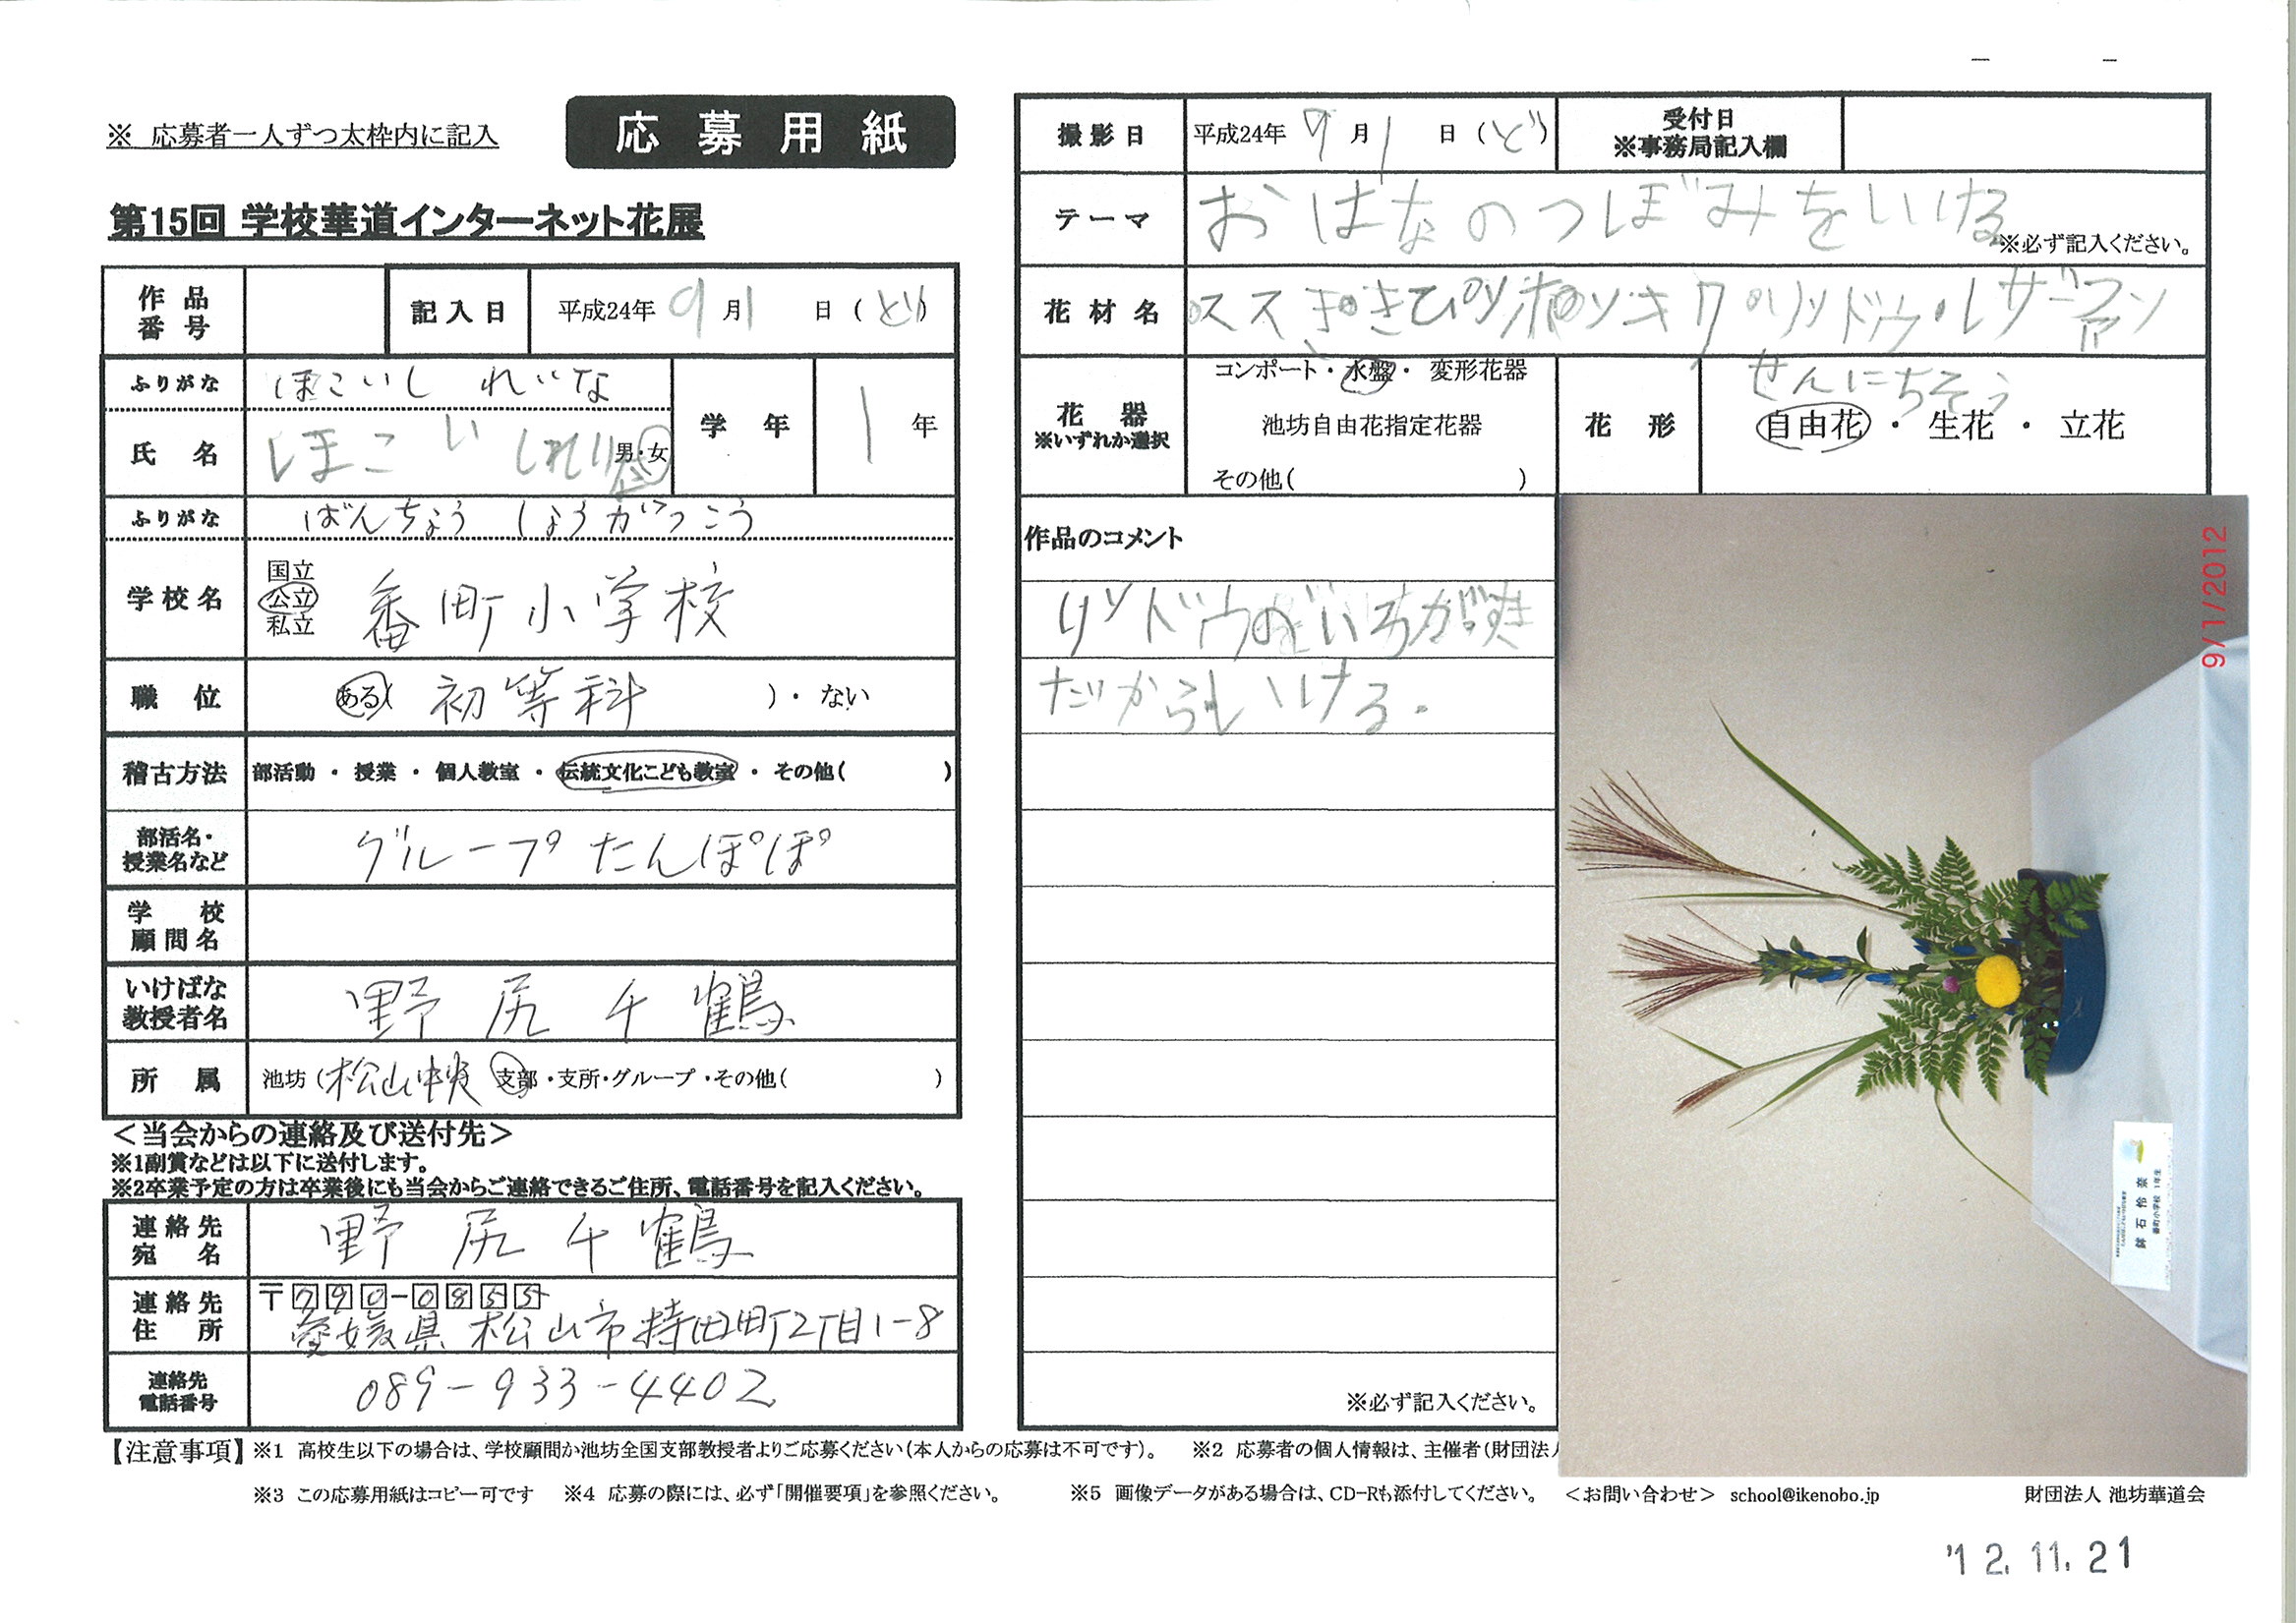 ※ 応募者一人ずつ太枠内に記入
応募用紙
第15回 学校華道インターネット花展
作品番号
記入日 平成24年 9月1日(ど)
ふりがな ほこいし れいな
氏名 ほこいしれいな 男・女
学年 1年
ふりがな ばんちょう しょうがっこう
学校名 国立 公立 私立 番町小学校
職位 ある(初等科)・ない
稽古方法 部活動・授業・個人教室・伝統文化こども教室・その他( )
部活名・授業名など グループたんぽぽ
学校顧問名
いけばな教授者名 野尻千鶴
所属 池坊(松山中央 支部・支所・グループ・その他( )
＜当会からの連絡及び送付先＞
※1副賞などは以下に送付します。
※2卒業予定の方は卒業後にも当会からご連絡できるご住所、電話番号を記入ください。
連絡先宛名 野尻千鶴
連絡先住所 〒790-0855
愛媛県松山市持田町2丁目1-8
連絡先電話番号 089-933-4402
撮影日 平成24年 9月1日(ど)
受付日
※事務局記入欄
テーマ おばなのつぼみをいける
※必ず記入ください。
花材名 リンドウ・レザーファン
せんにちそう
花器 ※いずれか選択
コンポート・水盤・変形花器
池坊自由花指定花器
その他( )
花形 自由花・生花・立花
作品のコメント
リンドウのいろがすき
だからいける.
※必ず記入ください。
9/1/2012
鉢石怜奈
番町小学校 1年生
【注意事項】 ※1 高校生以下の場合は、学校顧問か池坊全国支部教授者よりご応募ください(本人からの応募は不可です)。 ※2 応募者の個人情報は、主催者(財団法人
※3 この応募用紙はコピー可です ※4 応募の際には、必ず「開催要項」を参照ください。 ※5 画像データがある場合は、CD-Rも添付してください。 ＜お問い合わせ＞ school@ikenobo.jp 財団法人 池坊華道会
'12.11.21